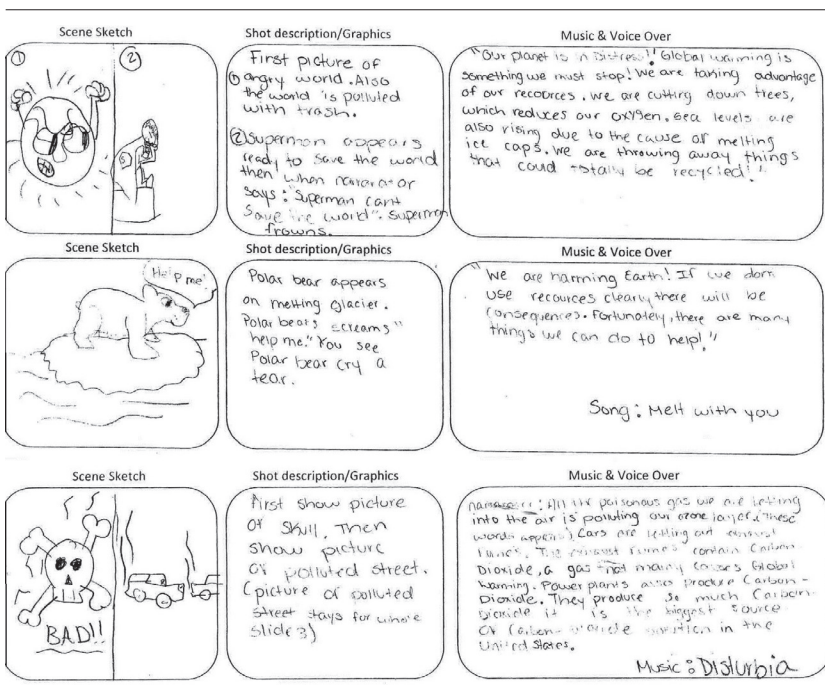 Scene Sketch
Shot description/Graphics
Music & Voice Over
①
②
S
First picture of
① angry world. Also
the world is polluted
with trash.
② Superman appears
ready to save the world
then when narorator
says: "Superman cant
Save the world". Superman
frowns.
"Our planet is in Distress!! Global warming is
something we must stop! We are taking advantage
of our recources. We are cutting down trees,
which reduces our oxygen. Sea levels are
also rising due to the cause of melting
ice caps. We are throwing away things
that coud totally be recycled!"
Scene Sketch
Shot description/Graphics
Music & Voice Over
Help me!
Polar bear appears
on melting glacier.
Polar bears screams "
help me." You see
Polar bear cry a
tear.
"We are harming Earth! If we dont
use recources clearly, there will be
consequences. Fortunately, there are many
things we can do to help!"
Song: Melt with you
Scene Sketch
Shot description/Graphics
Music & Voice Over
BAD!!
First show picture
of skull, Then
show picture
of polluted street.
(picture of polluted
street stays for whole
slide 3)
: All the poisonous gas we are letting
into the air is polluting our ozone layer. (These
words appear) Cars are letting out
fumes. The exhaust fumes contain Carbon-
Dioxide, a gas that mainly causes Global
Warming. Power plants also produce Carbon-
Dioxide. They produce so much Carbon-
Dioxide it is the biggest source
of Carbon-Dioxide in the
United States.
Music: Disturbia